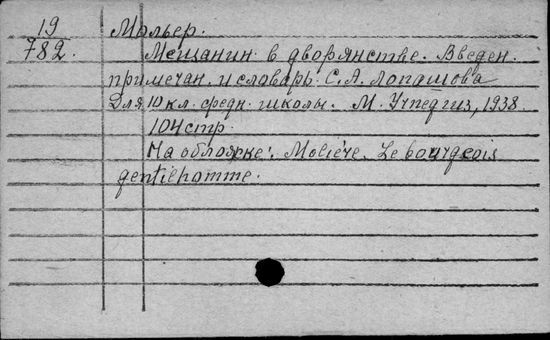 19
782.
Мольер.
Мещанин в дворянстве. Введен.
примечан. и словарь С. А. Лопашова
Для 10 кл. средн. школы. М. Учпедгиз, 1938
104 стр.
На обложке: Molière. Le bourgeois
gentilhomme.